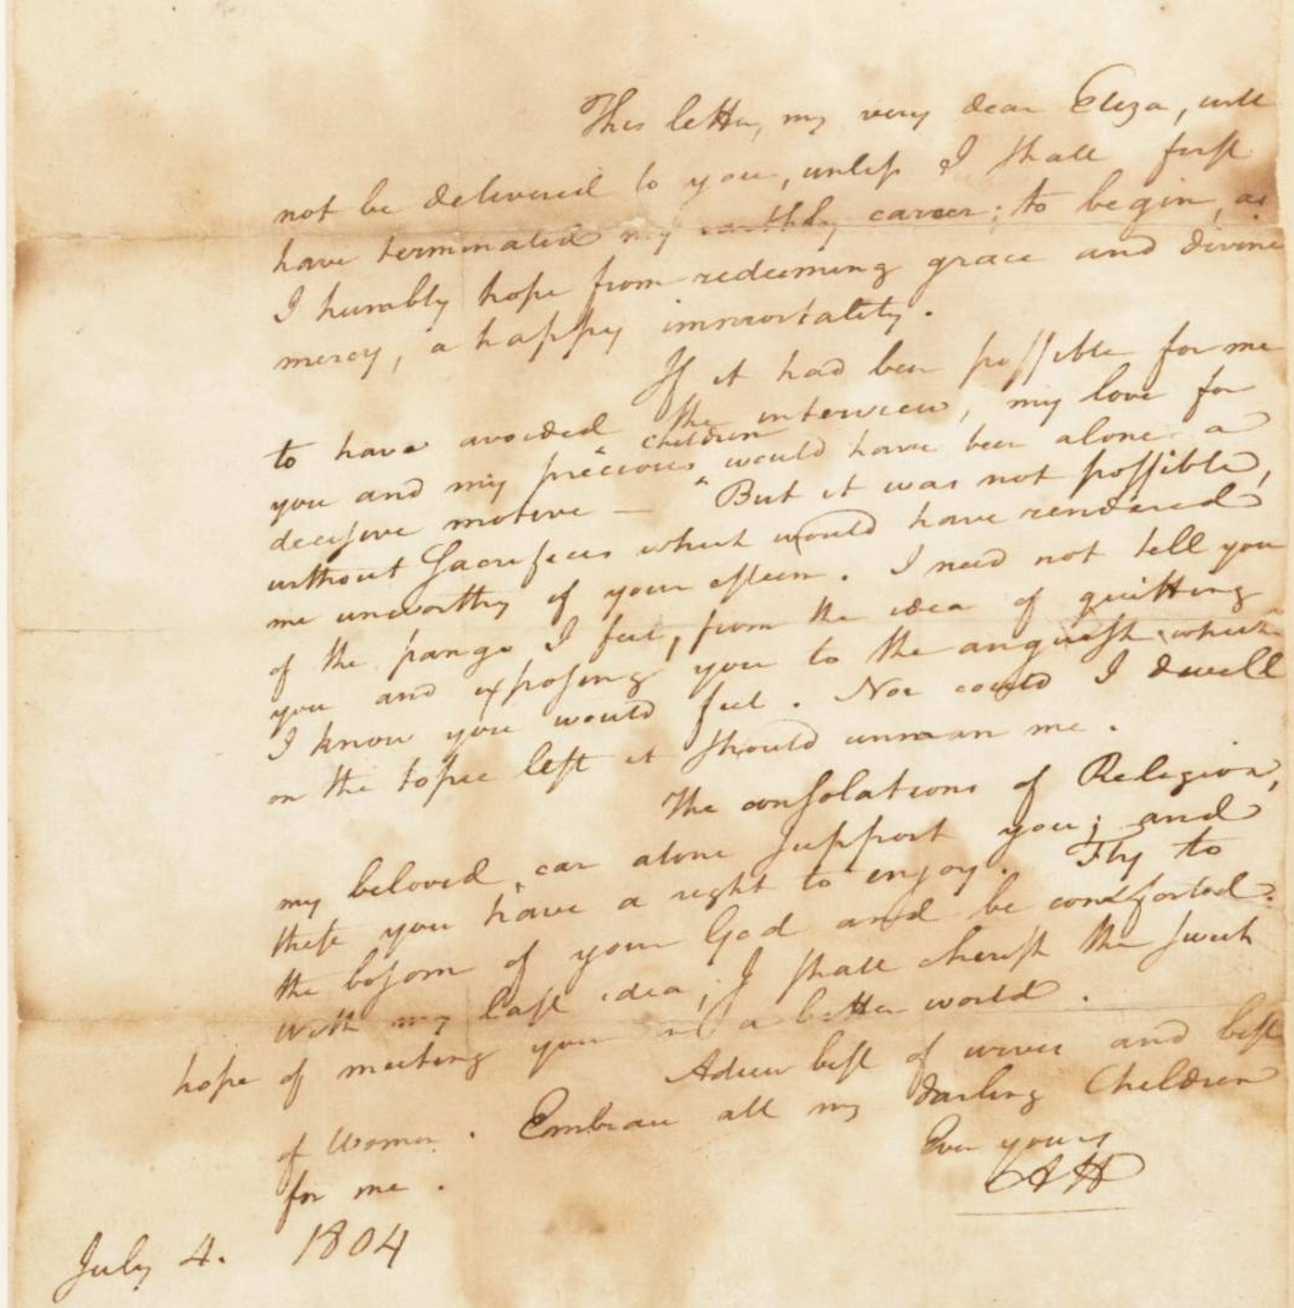 This letter, my very dear Eliza, will
not be delivered to you, unless I shall first
have terminated my earthly career; to begin, as
I humbly hope from redeeming grace and divine
mercy, a happy immortality.
If it had been possible for me
to have avoided the interview, my love for
you and my precious children would have been alone a
decisive motive — But it was not possible,
without sacrifices which would have rendered
me unworthy of your esteem. I need not tell you
of the pangs I feel, from the idea of quitting
you and exposing you to the anguish which
I know you would feel. Nor could I dwell
on the topic lest it should unman me.
The consolations of Religion,
my beloved, can alone support you; and
these you have a right to enjoy. Fly to
the bosom of your God and be comforted.
With my last idea, I shall cherish the sweet
hope of meeting you in a better world.
Adieu best of wives and best
of Women. Embrace all my darling Children
for me.
Ever yours
AH
July 4. 1804